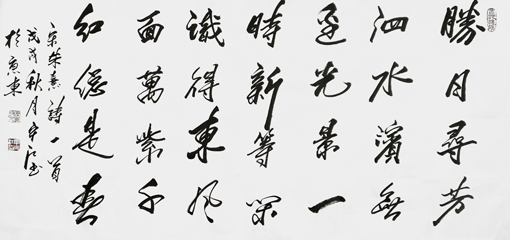 勝日尋芳
泗水濱無
邊光景一
時新等閑
識得東風
面萬紫千
紅總是春
宋朱熹詩一首
戊戌秋月江書
於廣東